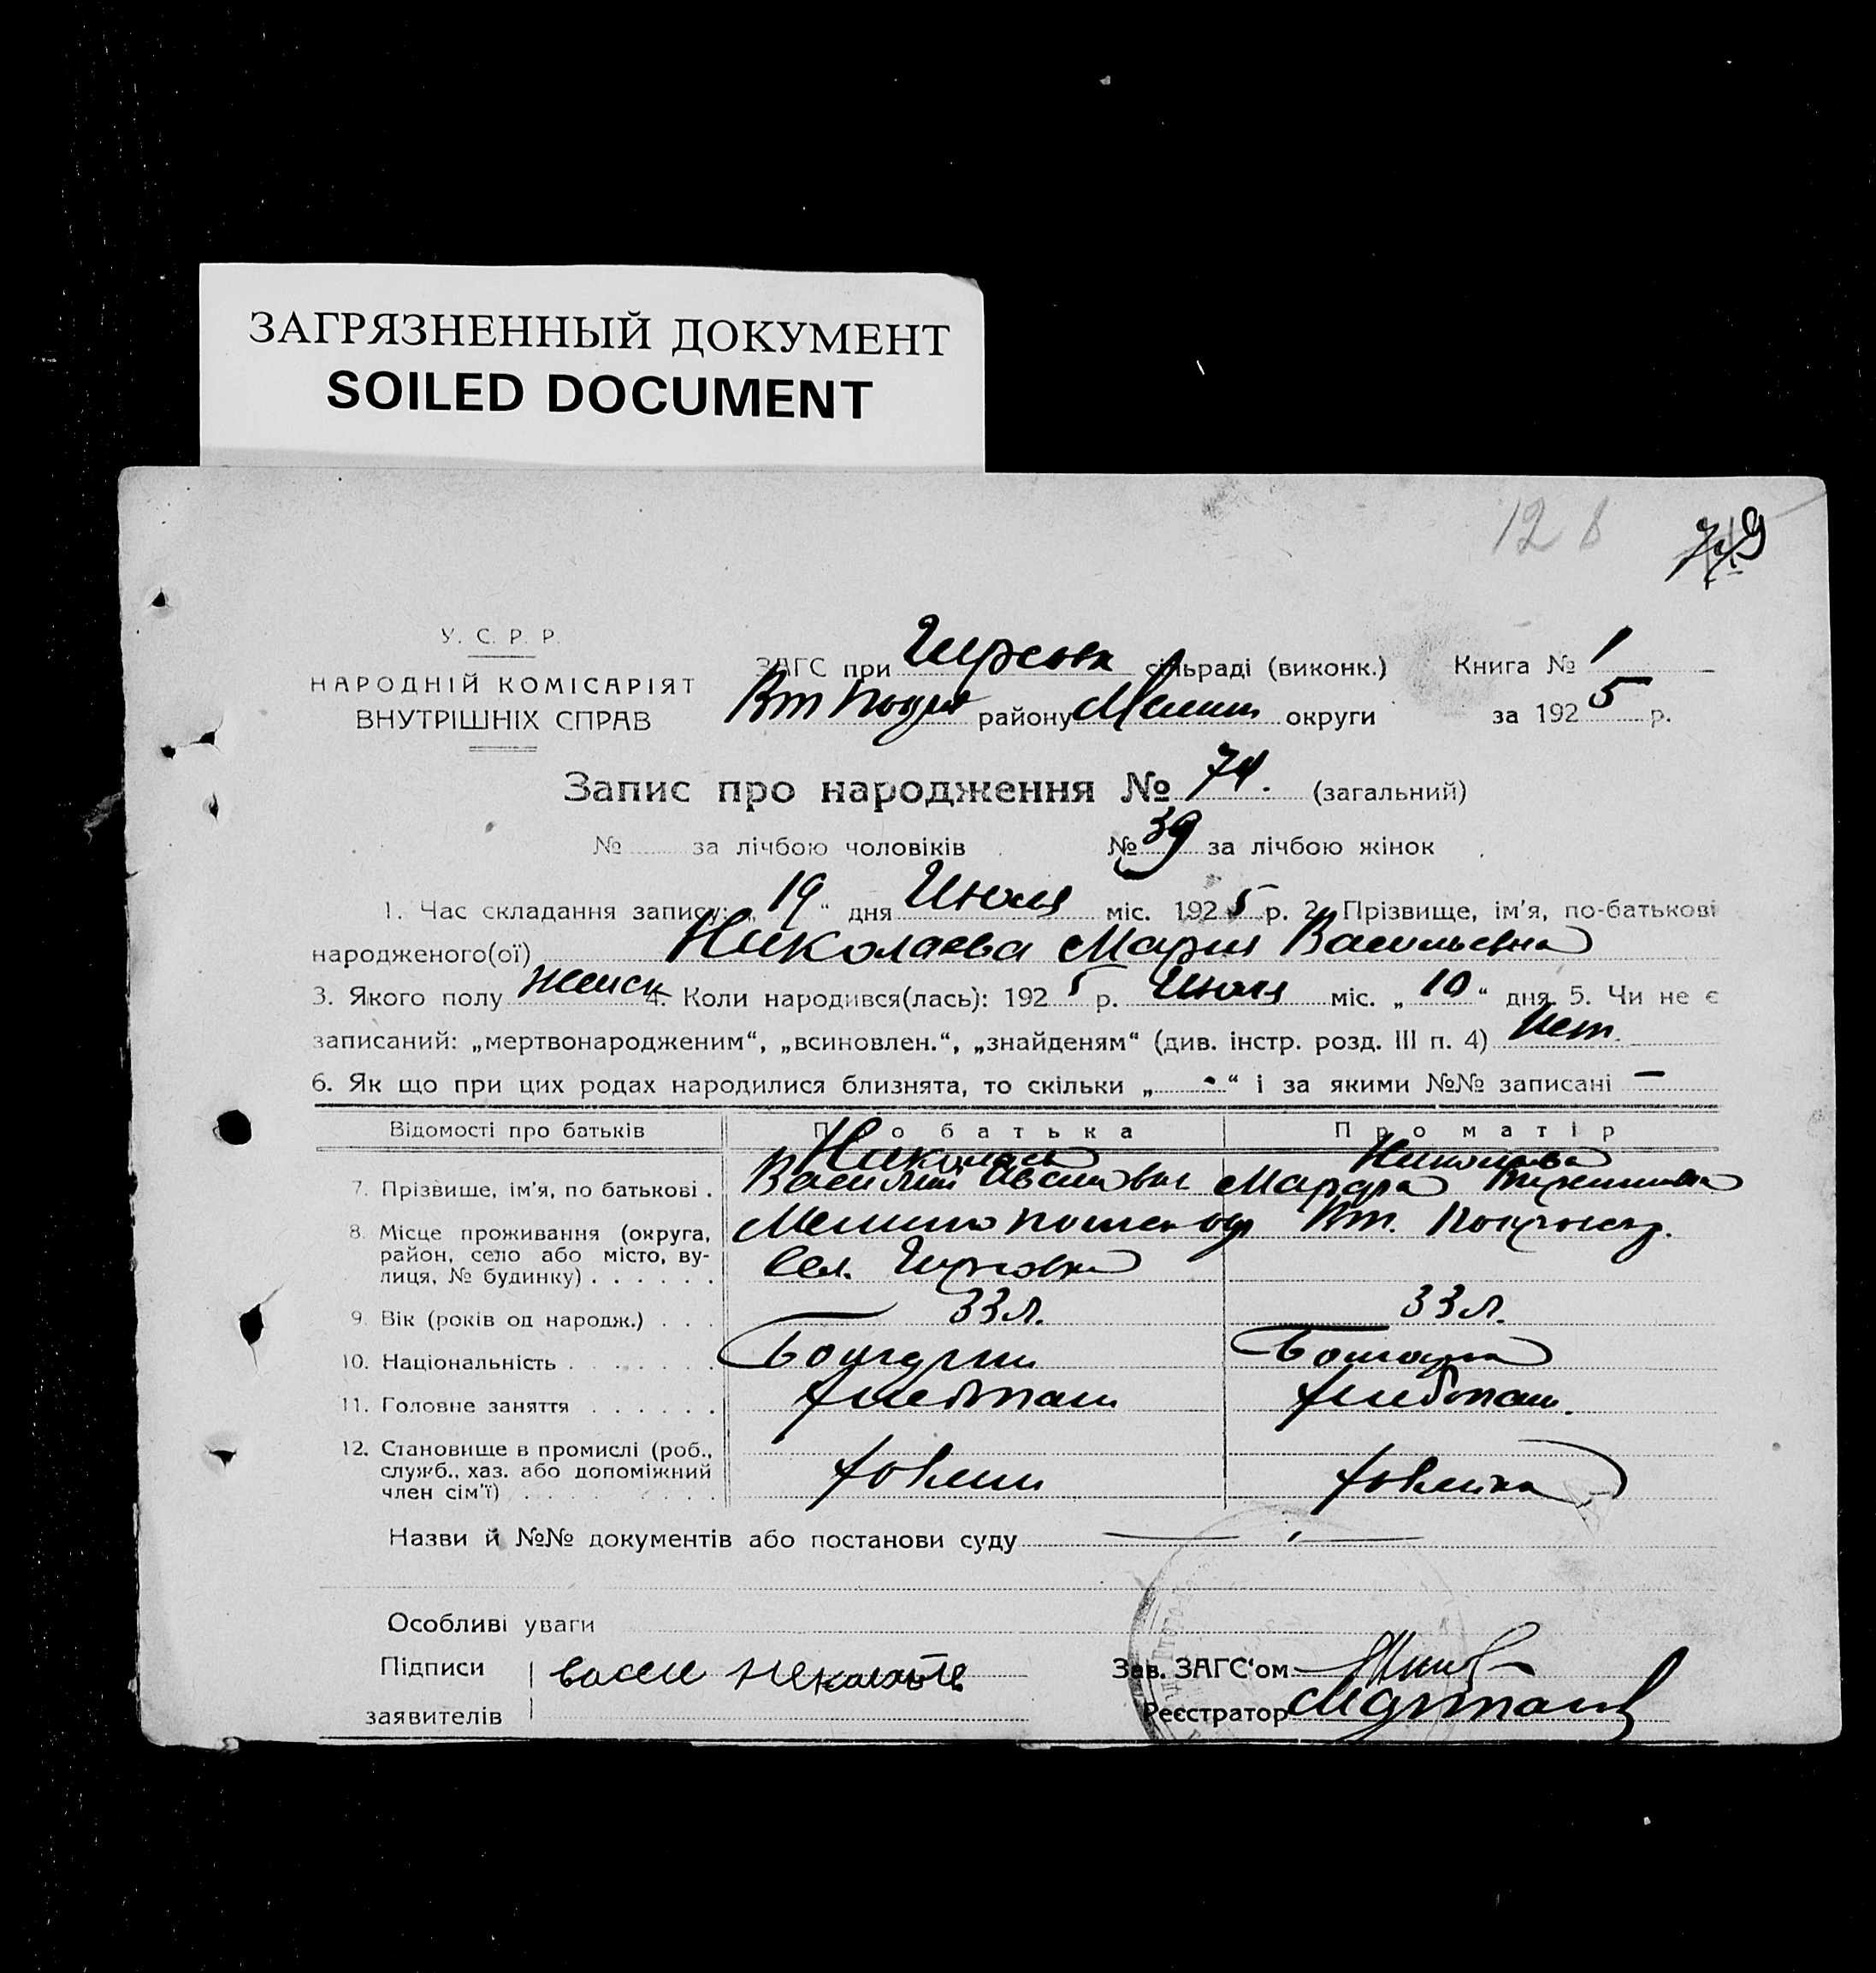 ЗАГРЯЗНЕННЫЙ ДОКУМЕНТ
SOILED DOCUMENT
128
У. С. Р. Р.
НАРОДНІЙ КОМІСАРІЯТ
ВНУТРІШНІХ СПРАВ
ЗАГС при Гирсовк сільраді (виконк.) Книга № 1
району Мелит округи за 1925 р.
Запис про народження № 74. (загальний)
№ за лічбою чоловіків № 39 за лічбою жінок
1. Час складання запису: „19“ дня Июля міс. 1925 р. 2. Прізвище, ім'я, по-батькові
народженого(ої) Николаева Мария Васильевна
3. Якого полу женск 4. Коли народився(лась): 1925 р. Июля міс. „10“ дня. 5. Чи не є
записаний: „мертвонародженим“, „всиновлен.“, „знайденям“ (див. інстр. розд. III п. 4) Нет.
6. Як що при цих родах народилися близнята, то скільки „-“ і за якими №№ записані —
Відомості про батьків Про батька Про матір
Николаев Николаева
7. Прізвище, ім'я, по батькові . Василий Иванович Марфа
8. Місце проживання (округа,
район, село або місто, ву-
лиця, № будинку) . . . . . . Сел. Гирсовка
9. Вік (років од народж.) . . . 33 л. 33 л.
10. Національність . . . . . . . Болгарин Болгарка
11. Головне заняття . . . . . . хлебопаш хлебопаш.
12. Становище в промислі (роб.,
служб., хаз. або допоміжний
член сім'ї) . . . . . . хозяин хозяйка
Назви й №№ документів або постанови суду
Особливі уваги
Підписи
заявителів
Зав. ЗАГС'ом
Реєстратор